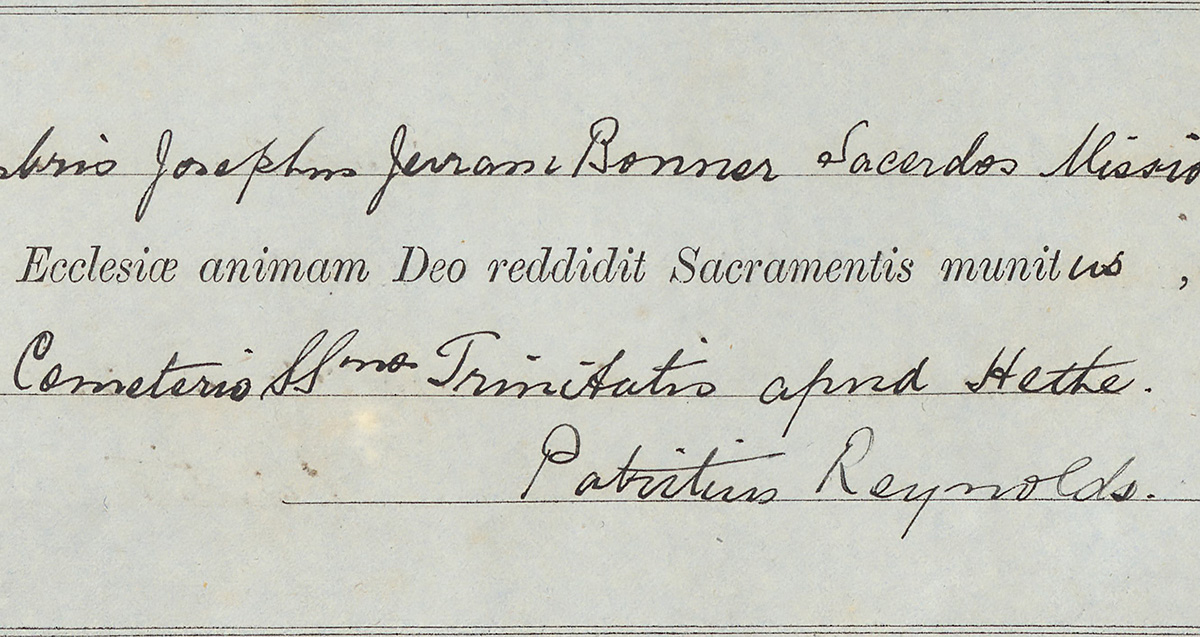 bris Josephus Jerram Bonner Sacerdos Missio
Ecclesiæ animam Deo reddidit Sacramentis munitus ,
Cemeterio SSmae Trinitatis apud Hethe.
Patritius Reynolds.